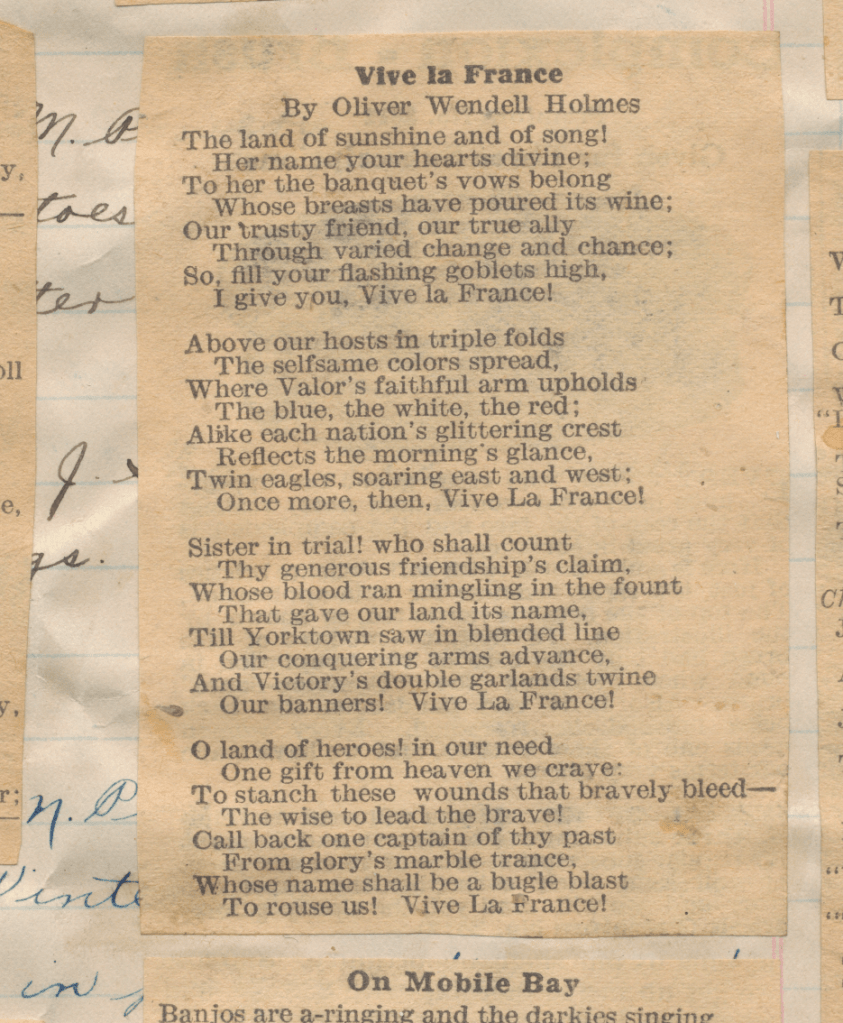 Vive la France
By Oliver Wendell Holmes
The land of sunshine and of song!
Her name your hearts divine;
To her the banquet's vows belong
Whose breasts have poured its wine;
Our trusty friend, our true ally
Through varied change and chance;
So, fill your flashing goblets high,
I give you, Vive la France!
Above our hosts in triple folds
The selfsame colors spread,
Where Valor's faithful arm upholds
The blue, the white, the red;
Alike each nation's glittering crest
Reflects the morning's glance,
Twin eagles, soaring east and west;
Once more, then, Vive La France!
Sister in trial! who shall count
Thy generous friendship's claim,
Whose blood ran mingling in the fount
That gave our land its name,
Till Yorktown saw in blended line
Our conquering arms advance,
And Victory's double garlands twine
Our banners! Vive La France!
O land of heroes! in our need
One gift from heaven we crave:
To stanch these wounds that bravely bleed—
The wise to lead the brave!
Call back one captain of thy past
From glory's marble trance,
Whose name shall be a bugle blast
To rouse us! Vive La France!
On Mobile Bay
Banjos are a-ringing and the darkies singing
M. P
toes
ter
J.
gs.
N. P
in